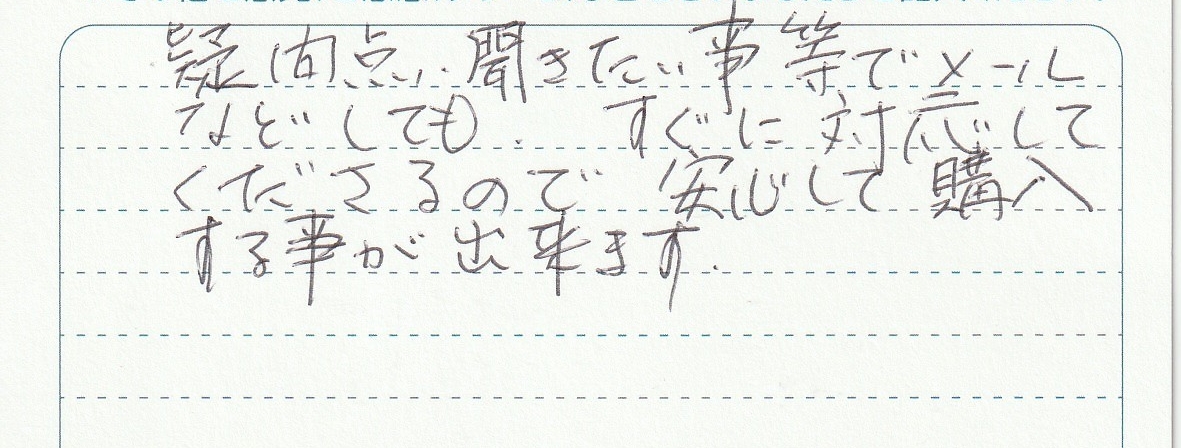 疑問点、聞きたい事等でメール
などしても、すぐに対応して
くださるので安心して購入
する事が出来ます.